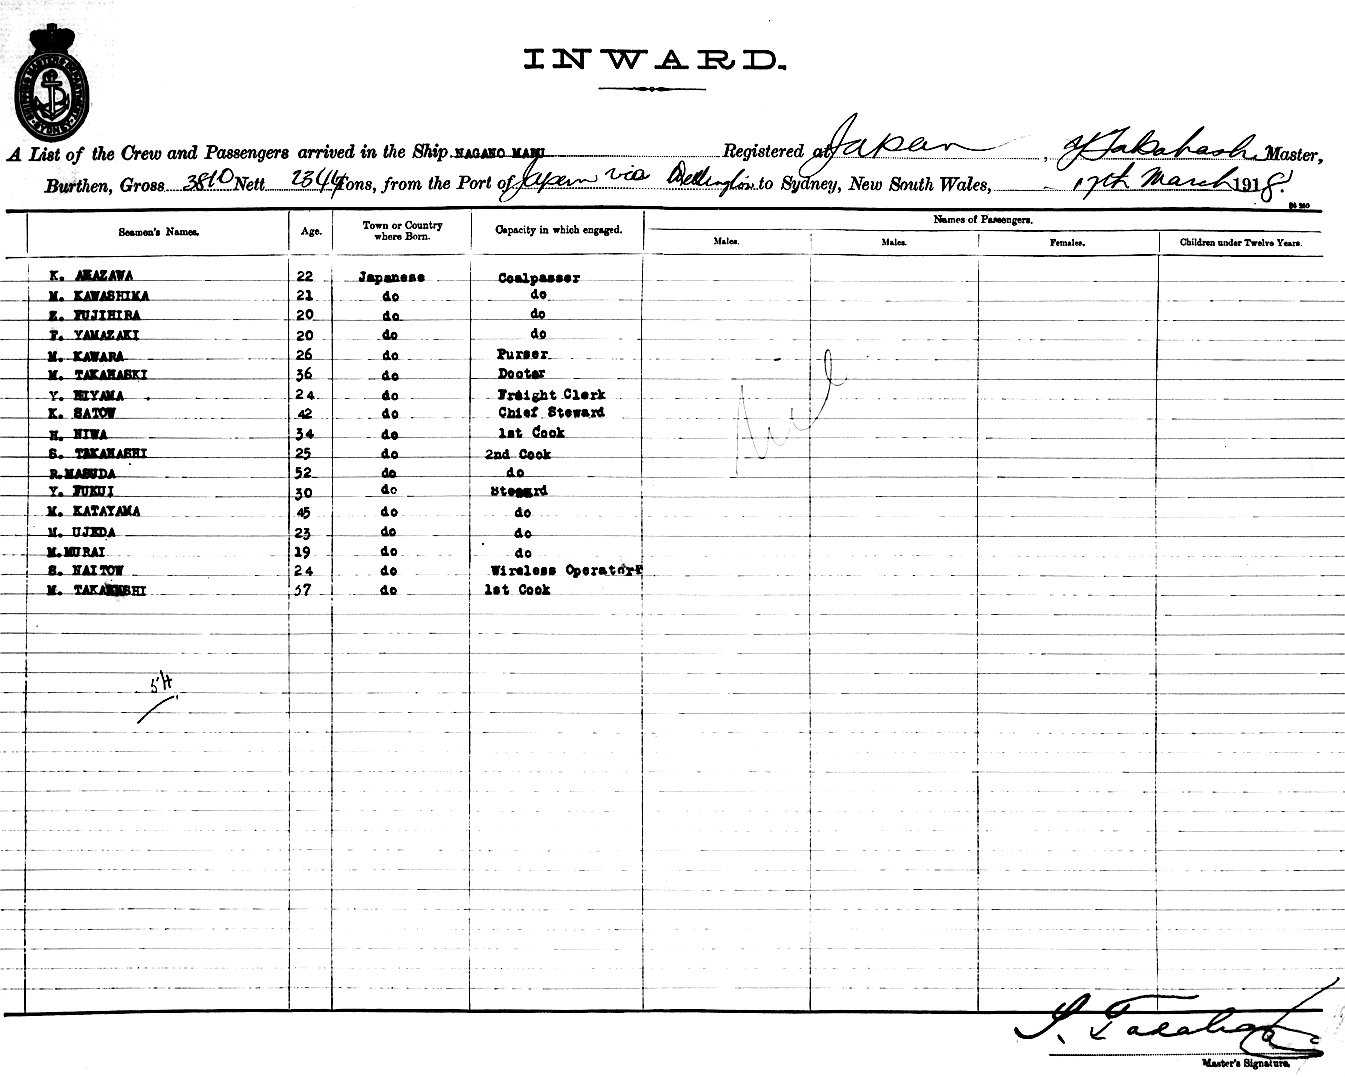 SHIPPING MASTERS DEPARTMENT
SYDNEY
INWARD.
A List of the Crew and Passengers arrived in the Ship NAGANO MARU Registered at Japan, Y Takahashi Master,
Burthen, Gross 3810 Nett 2344 Tons, from the Port of Japan via Wellington to Sydney, New South Wales, 17th March 1918.
Names of Passengers.
Seamen's Names. Age. Town or Country where Born. Capacity in which engaged. Males. Males. Females. Children under Twelve Years.
K. AKAZAWA 22 Japanese Coalpasser
M. KAWASHIMA 21 do do
Z. FUJIHIRA 20 do do
F. YAMAZAKI 20 do do
M. KAWARA 26 do Purser
M. TAKAHASKI 36 do Doctor
Y. MIYAMA 24 do Freight Clerk
K. SATOW 42 do Chief Steward
H. NIWA 34 do 1st Cook
S. TAKAHASHI 25 do 2nd Cook
R. MASUDA 52 do do
Y. FUKUI 30 do Steward
M. KATAYAMA 45 do do
M. UJEDA 23 do do
M. MURAI 19 do do
S. NAITOW 24 do Wireless Operator
M. TAKAHASHI 37 do 1st Cook
Nill
54
Master's Signature.